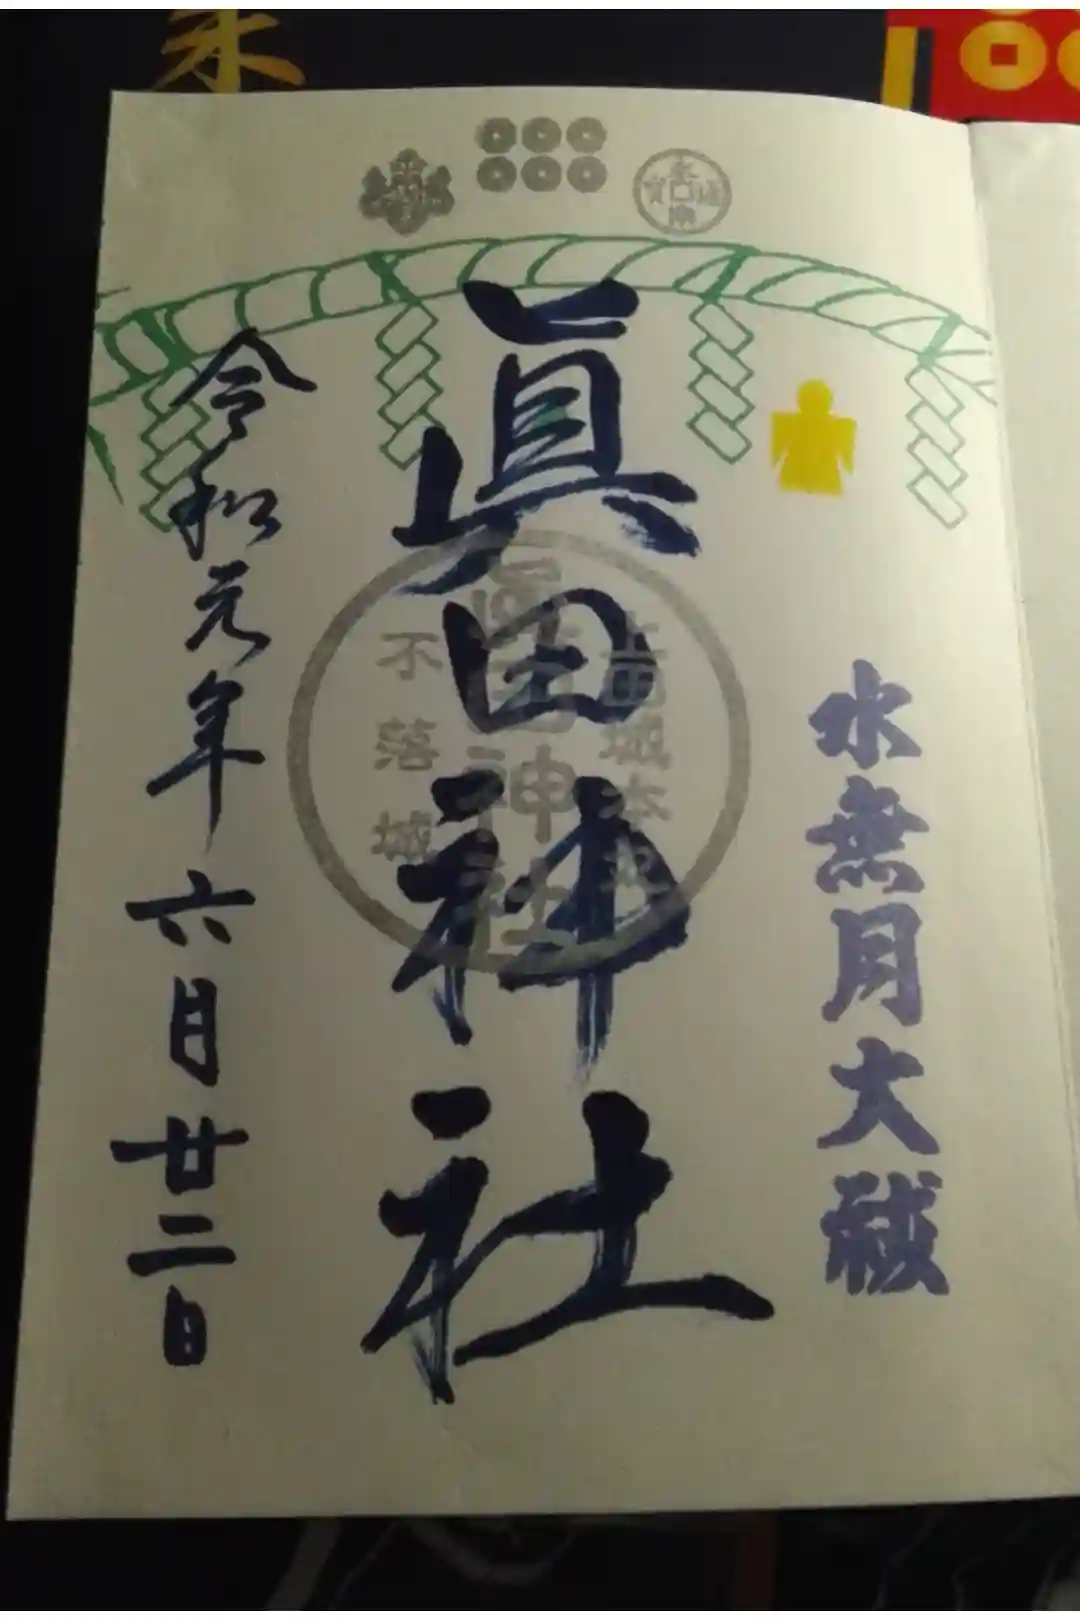 永樂通寳
水無月大祓
眞田神社
上田城本丸
眞田神社
不落城
令和元年六月廿二日